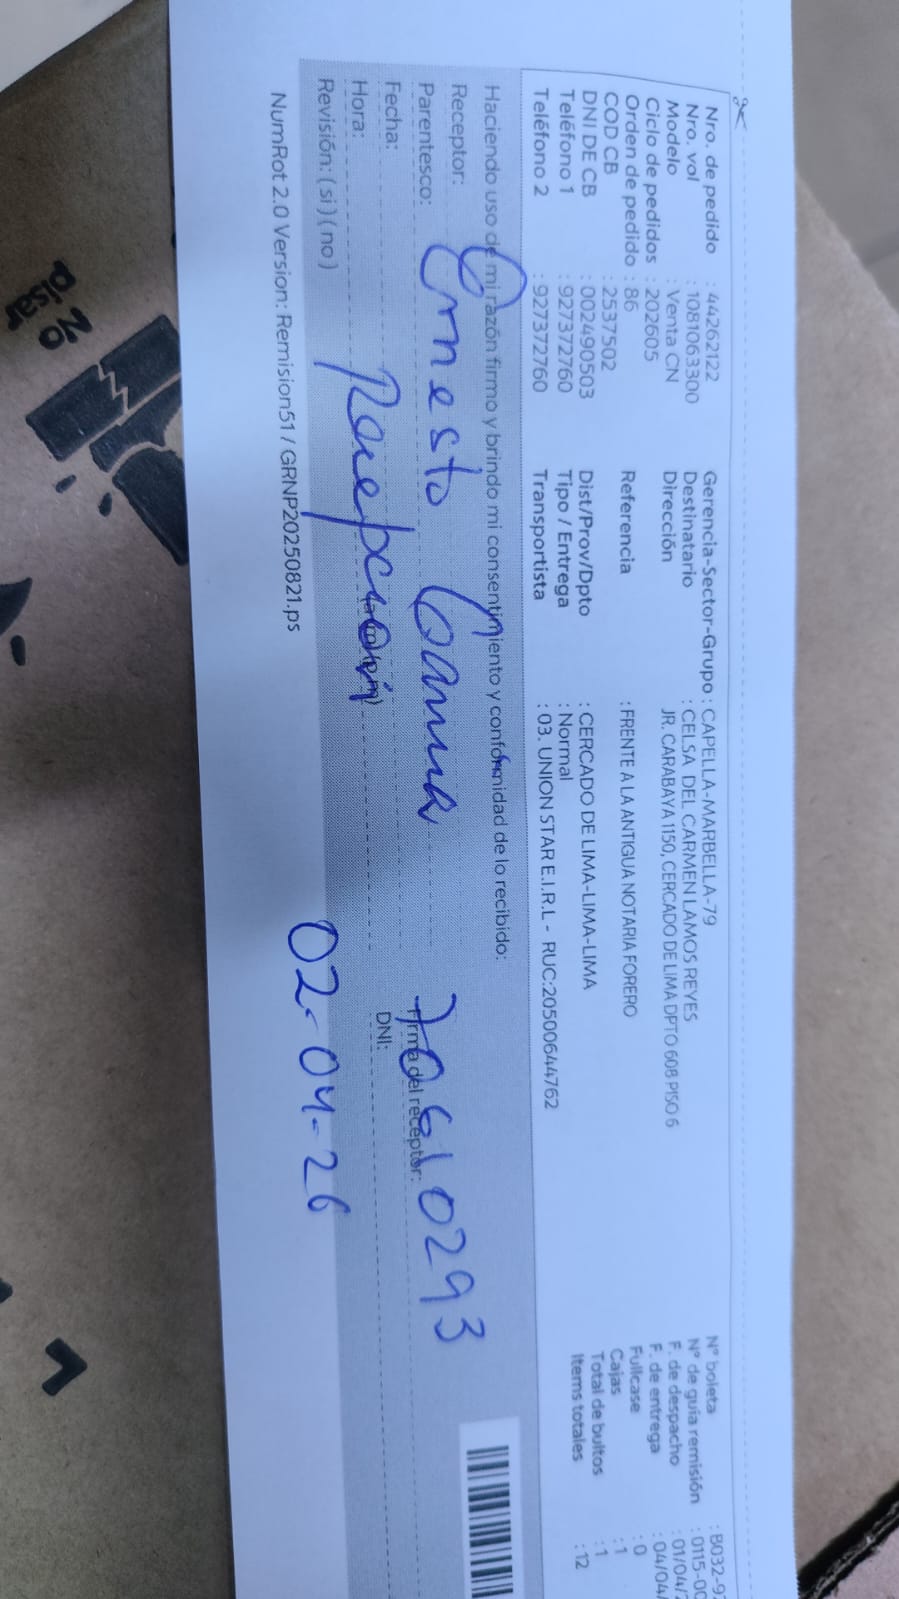 Nro. de pedido : 44262122 Gerencia-Sector-Grupo : CAPELLA-MARBELLA-79 N° boleta : B032-9
Nro. vol : 1081063300 Destinatario : CELSA DEL CARMEN LAMOS REYES N° de guia remisión : 0115-00
Modelo : Venta CN Dirección JR. CARABAYA 1150, CERCADO DE LIMA DPTO 608 PISO 6 F. de despacho : 01/04/
Ciclo de pedidos : 202605 F. de entrega : 04/04/
Orden de pedido : 86 Referencia : FRENTE A LA ANTIGUA NOTARIA FORERO Fullcase : 0
COD CB : 2537502 Cajas : 1
DNI DE CB : 002490503 Dist/Prov/Dpto : CERCADO DE LIMA-LIMA-LIMA Total de bultos : 1
Teléfono 1 : 92732760 Tipo / Entrega : Normal Items totales : 12
Teléfono 2 : 92732760 Transportista : 03. UNION STAR E.I.R.L - RUC:20500644762
Haciendo uso de mi razón firmo y brindo mi consentimiento y conformidad de lo recibido:
Receptor:
Parentesco: Ernesto Gamma 70610293
Firma del receptor:
Fecha: DNI:
Hora: Recepción
Revisión: ( si ) ( no ) 02-04-26
NumRot 2.0 Version: Remision51 / GRNP20250821.ps
No
pisar